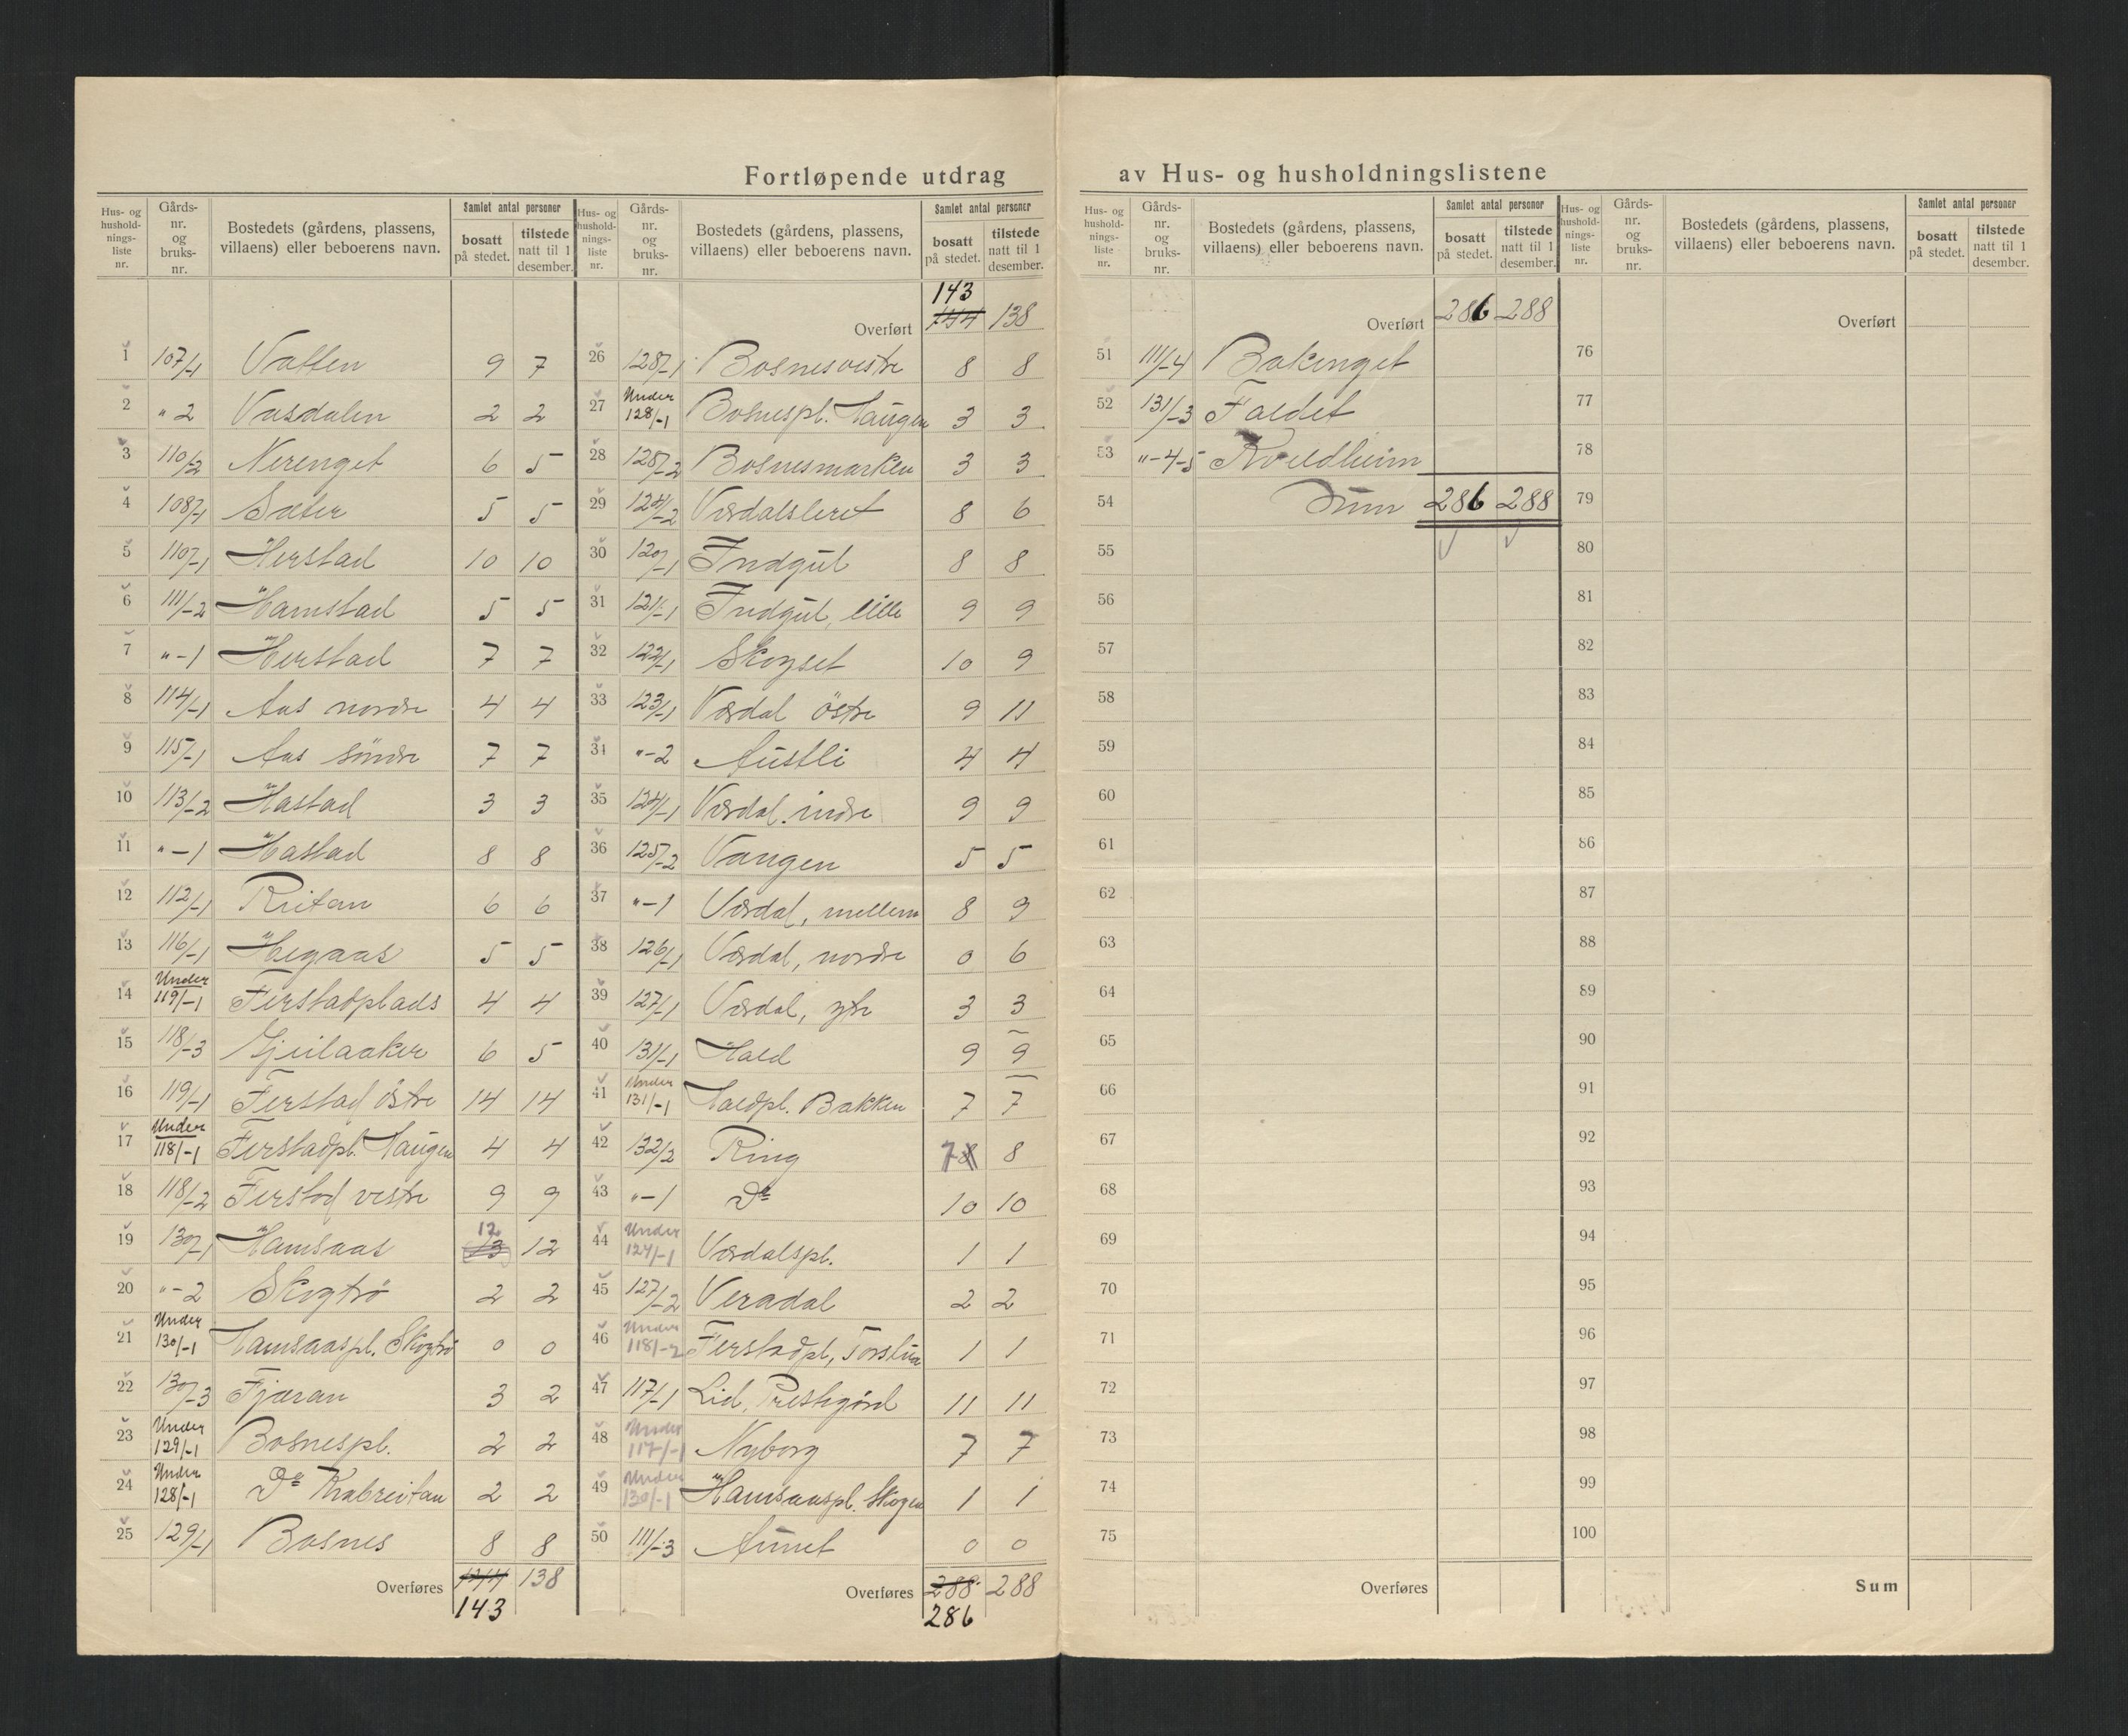 Fortløpende utdrag av Hus- og husholdningslistene
Hus- og hushold-nings-liste nr. | Gårds-nr. og bruks-nr. | Bostedets (gårdens, plassens, villaens) eller beboerens navn. | Samlet antal personer | bosatt på stedet. | tilstede natt til 1 desember.
1 107/-1 Vatten 9 7
2 "2 Vasdalen 2 2
3 110/-2 Nerenget 6 5
4 108/-1 Sæter 5 5
5 110/-1 Herstad 10 10
6 111/-2 Hamstad 5 5
7 "-1 Herstad 7 7
8 114/-1 Aas nordre 4 4
9 115/-1 Aas söndre 7 7
10 113/-2 Hastad 3 3
11 "-1 Hastad 8 8
12 112/-1 Reitan 6 6
13 116/-1 Hegaas 5 5
14 Under 119/-1 Ferstadplads 4 4
15 118/-3 Gjeilaaker 6 5
16 119/-1 Ferstad östre 14 14
17 Under 118/-1 Ferstadpl. Haugen 4 4
18 118/-2 Ferstad vestre 9 9
19 130/-1 Hamsaas 13 12 12
20 "-2 Skogtrö 2 2
21 Under 130/-1 Hamsaaspl. Skogtrö 0 0
22 130/-3 Fjæran 3 2
23 Under 129/-1 Bosnespl. 2 2
24 Under 128/-1 Do Krabreitan 2 2
25 129/-1 Bosnes 8 8
Overføres 144 138
143
Hus- og hushold-nings-liste nr. | Gårds-nr. og bruks-nr. | Bostedets (gårdens, plassens, villaens) eller beboerens navn. | Samlet antal personer | bosatt på stedet. | tilstede natt til 1 desember.
143
Overført 144 138
26 128/-1 Bosnesvestre 8 8
27 Under 128/-1 Bosnespl. Haugen 3 3
28 128/-2 Bosnesmarken 3 3
29 124/-2 Værdalsleret 8 6
30 120/-1 Indgul 8 8
31 121/-1 Indgul, lille 9 9
32 122/-1 Skogset 10 9
33 123/-1 Værdal östre 9 11
34 "-2 Austli 4 4
35 124/-1 Værdal. indre 9 9
36 125/-2 Vangen 5 5
37 "-1 Værdal, mellem 8 9
38 126/-1 Værdal, nordre 0 6
39 127/-1 Værdal, ytre 3 3
40 131/-1 Hald 9 9
41 Under 131/-1 Haldpl. Bakken 7 7
42 132/2 Ring 7 8 8
43 "-1 Do 10 10
44 Under 124/-1 Værdalspl. 1 1
45 127/-2 Veradal 2 2
46 Under 118/-2 Ferstadpl, Torstua 1 1
47 117/-1 Lid, Prestegård 11 11
48 Under 117/-1 Nyborg 7 7
49 Under 130/-1 Hamsaaspl. Skogen 1 1
50 111/-3 Aunet 0 0
Overføres 288 288
286
Hus- og hushold-nings-liste nr. | Gårds-nr. og bruks-nr. | Bostedets (gårdens, plassens, villaens) eller beboerens navn. | Samlet antal personer | bosatt på stedet. | tilstede natt til 1 desember.
Overført 286 288
51 111/-4 Bakenget
52 131/-3 Faldet
53 "-4-5
54 Sum 286 288
55
56
57
58
59
60
61
62
63
64
65
66
67
68
69
70
71
72
73
74
75
Overføres
Hus- og hushold-nings-liste nr. | Gårds-nr. og bruks-nr. | Bostedets (gårdens, plassens, villaens) eller beboerens navn. | Samlet antal personer | bosatt på stedet. | tilstede natt til 1 desember.
Overført
76
77
78
79
80
81
82
83
84
85
86
87
88
89
90
91
92
93
94
95
96
97
98
99
100
Sum